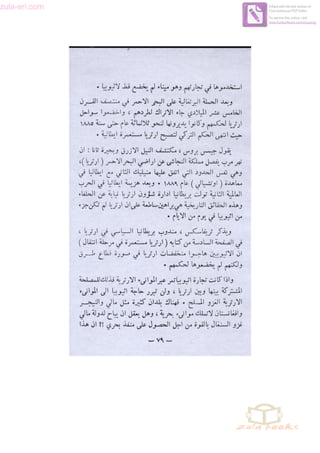 zula-eri.com
استخدموها في تجارتهم وهو ميناء لم يخضع قط لاثيوبيا ٠
وبعد الحملة البرتغالية على البحر الاحمر في منتصف القـــرن
الخامس عشر الميلادي جاء الاتراك لطردهم ، واخضعوا سواحل
ارتريا لحكمهم وكانوا يديرونها لنحو ثلاثمائة عام حتى سنة ١٨٨٥
حيث انتهى الحكم التركي لتصبح ارتريا مستعمرة ايطالية ٠
يقول جيمس بروس ، مكتشف النيل الازرق وبحيرة تانا : ان
نهر مرب يفصل مملكة النجاشي عن اراضي البحر الاحمر ( ارتريا ) ،
وهي نفس الحدود التي اتفق عليها منيليك الثاني مع ايطاليا في
معاهدة ( اوتشيالي ) عام ١٨٨٩ ٠ وبعد هزيمة ايطاليا في الحرب
العالمية الثانية تولت بريطانيا ادارة شؤون ارتريا نيابة عن الحلفاء
وهذه الحقائق التاريخية هي براهين ساطعة على ان ارتريا لم تكن جزء
من اثيوبيا في يوم من الايام ٠
ويذكر تريفاسكس ، مندوب بريطانيا السياسي في ارتريا ،
في الصفحة السادسة من كتابه ( ارتريا مستعمرة في مرحلة انتقال )
ان الاثيوبيين هاجموا منخفضات ارتريا في صورة قطاع طـــرق
ولكنهم لم يخضعوها لحكمهم ٠
واذا كانت تجارة اثيوبيا تمر عبر الموانىء الارترية فذلك للمصلحة
المشتركة بينها وبين ارتريا ، ولن تبرر حاجة اثيوبيا الى الموانىء
الارترية الغزو المسلح ٠ فهناك بلدان كثيرة مثل مالي والنيجـــر
وافغانستان لا تملك موانىء بحرية ، وهل يعقل ان يباح لدولة مالي
غزو السنغال بالقوة من اجل الحصول على منفذ بحري ؟! ان هذا
— ٧٩ —
zula eri